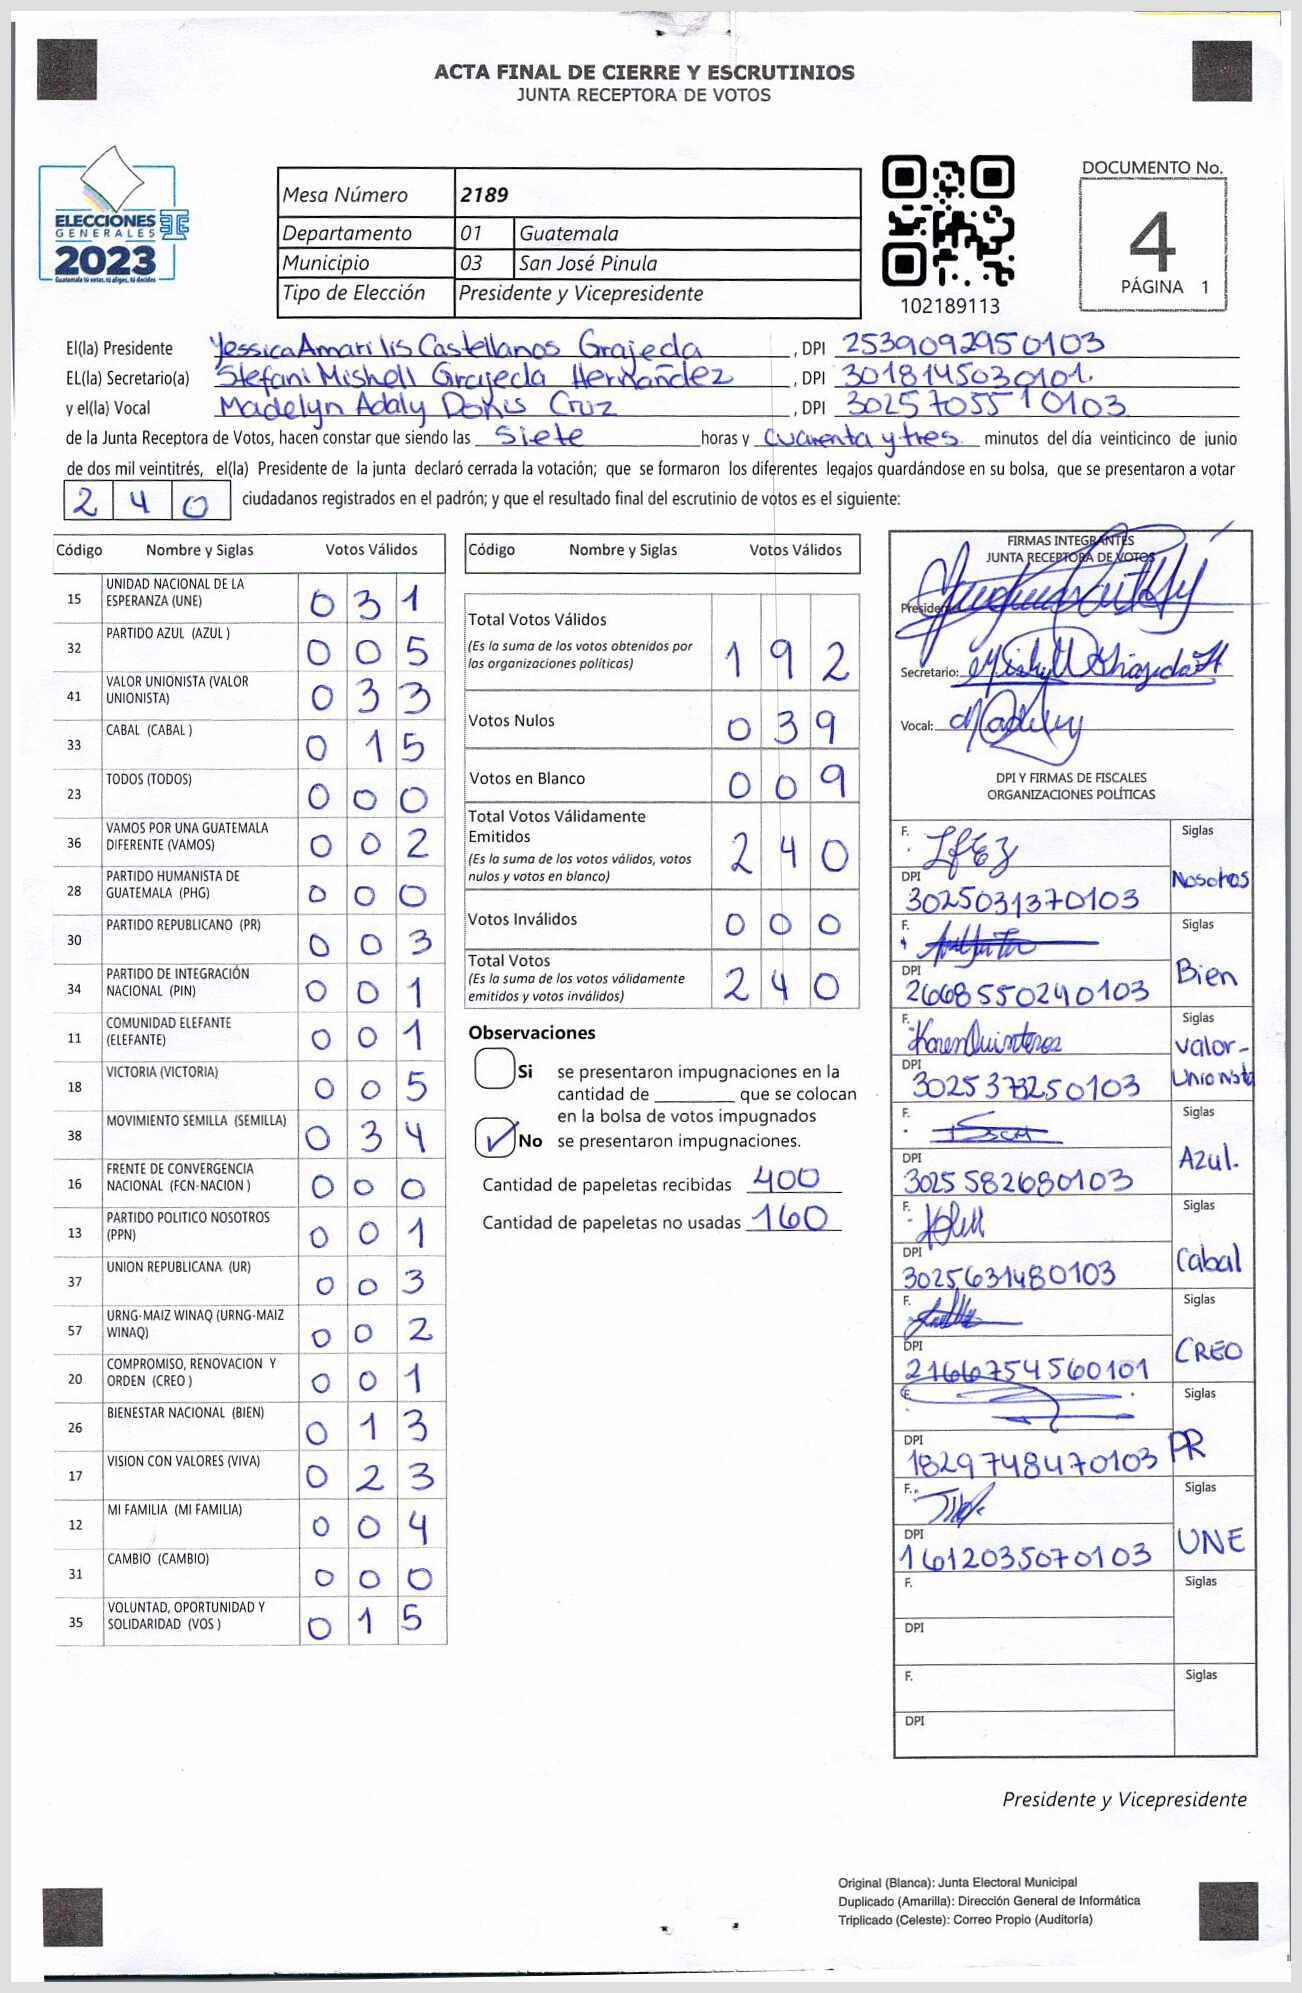 ACTA FINAL DE CIERRE Y ESCRUTINIOS
JUNTA RECEPTORA DE VOTOS
ELECCIONES
GENERALES
2023
Guatemala tú votas, tú eliges, tú decides
Mesa Número 2189
Departamento 01 Guatemala
Municipio 03 San José Pinula
Tipo de Elección Presidente y Vicepresidente
102189113
DOCUMENTO No.
4
PÁGINA 1
El(la) Presidente Yessica Amarilis Castellanos Grajeda , DPI 2539092950103
EL(la) Secretario(a) Stefani Mishell Grajeda Hernández , DPI 3018145030101.
y el(la) Vocal Madelyn Adaly Donis Cruz , DPI 3025705510103
de la Junta Receptora de Votos, hacen constar que siendo las siete horas y cuarenta y tres minutos del día veinticinco de junio
de dos mil veintitrés, el(la) Presidente de la junta declaró cerrada la votación; que se formaron los diferentes legajos guardándose en su bolsa, que se presentaron a votar
2 4 0 ciudadanos registrados en el padrón; y que el resultado final del escrutinio de votos es el siguiente:
Código Nombre y Siglas Votos Válidos
15 UNIDAD NACIONAL DE LA ESPERANZA (UNE) 0 3 1
32 PARTIDO AZUL (AZUL ) 0 0 5
41 VALOR UNIONISTA (VALOR UNIONISTA) 0 3 3
33 CABAL (CABAL ) 0 1 5
23 TODOS (TODOS) 0 0 0
36 VAMOS POR UNA GUATEMALA DIFERENTE (VAMOS) 0 0 2
28 PARTIDO HUMANISTA DE GUATEMALA (PHG) 0 0 0
30 PARTIDO REPUBLICANO (PR) 0 0 3
34 PARTIDO DE INTEGRACIÓN NACIONAL (PIN) 0 0 1
11 COMUNIDAD ELEFANTE (ELEFANTE) 0 0 1
18 VICTORIA (VICTORIA) 0 0 5
38 MOVIMIENTO SEMILLA (SEMILLA) 0 3 4
16 FRENTE DE CONVERGENCIA NACIONAL (FCN-NACION ) 0 0 0
13 PARTIDO POLITICO NOSOTROS (PPN) 0 0 1
37 UNION REPUBLICANA (UR) 0 0 3
57 URNG-MAIZ WINAQ (URNG-MAIZ WINAQ) 0 0 2
20 COMPROMISO, RENOVACION Y ORDEN (CREO ) 0 0 1
26 BIENESTAR NACIONAL (BIEN) 0 1 3
17 VISION CON VALORES (VIVA) 0 2 3
12 MI FAMILIA (MI FAMILIA) 0 0 4
31 CAMBIO (CAMBIO) 0 0 0
35 VOLUNTAD, OPORTUNIDAD Y SOLIDARIDAD (VOS ) 0 1 5
Código Nombre y Siglas Votos Válidos
Total Votos Válidos
(Es la suma de los votos obtenidos por
las organizaciones políticas) 1 9 2
Votos Nulos 0 3 9
Votos en Blanco 0 0 9
Total Votos Válidamente
Emitidos
(Es la suma de los votos válidos, votos
nulos y votos en blanco) 2 4 0
Votos Inválidos 0 0 0
Total Votos
(Es la suma de los votos válidamente
emitidos y votos inválidos) 2 4 0
Observaciones
Si se presentaron impugnaciones en la
cantidad de ________ que se colocan
en la bolsa de votos impugnados
No se presentaron impugnaciones.
Cantidad de papeletas recibidas 400
Cantidad de papeletas no usadas 160
FIRMAS INTEGRANTES
JUNTA RECEPTORA DE VOTOS
Presidente:
Secretario:
Vocal:
DPI Y FIRMAS DE FISCALES
ORGANIZACIONES POLÍTICAS
F. Siglas
DPI Nosotros
3025031370103
F. Siglas
DPI Bien
2668550240103
F. Karen Quinteros Siglas
DPI Valor-
Unionista
F. Siglas
DPI Azul.
3025582680103
F. Siglas
DPI Cabal
3025631480103
F. Siglas
DPI CREO
2166754560101
F. Siglas
DPI PR
1829748470103
F. Siglas
DPI UNE
1612035070103
F. Siglas
DPI
F. Siglas
DPI
Presidente y Vicepresidente
Original (Blanca): Junta Electoral Municipal
Duplicado (Amarilla): Dirección General de Informática
Triplicado (Celeste): Correo Propio (Auditoría)